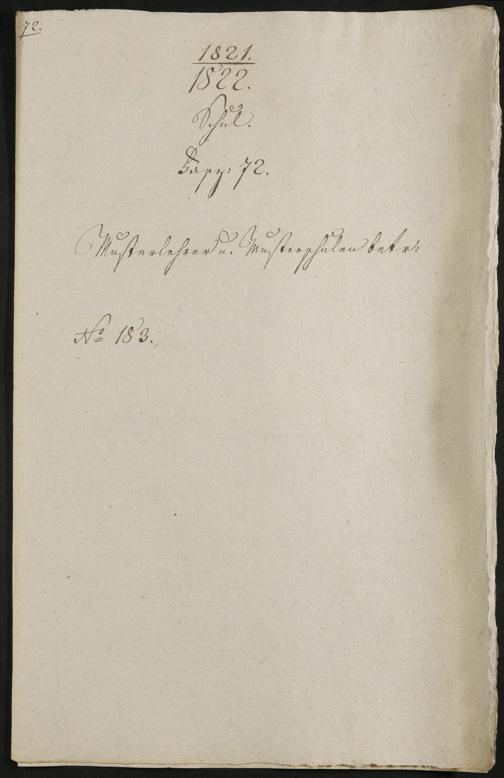 72.
1821.
1822.
Schul.
72.
Musterlehrer u. Musterschulen betr:
No 183.